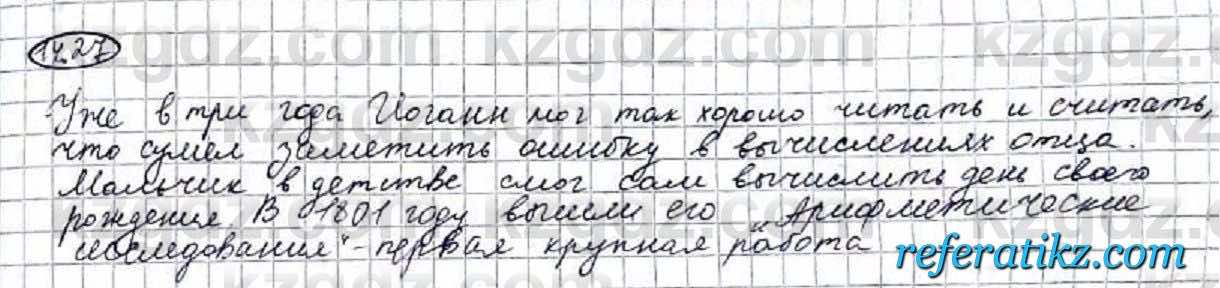 17.27
Уже в три года Иоганн мог так хорошо читать и считать,
что сумел заметить ошибку в вычислениях отца.
Мальчик в детстве смог сам вычислить день своего
рождения. В 1801 году вышли его „Арифметические
исследования" - первая крупная работа
kzgdz.com
referatikz.com